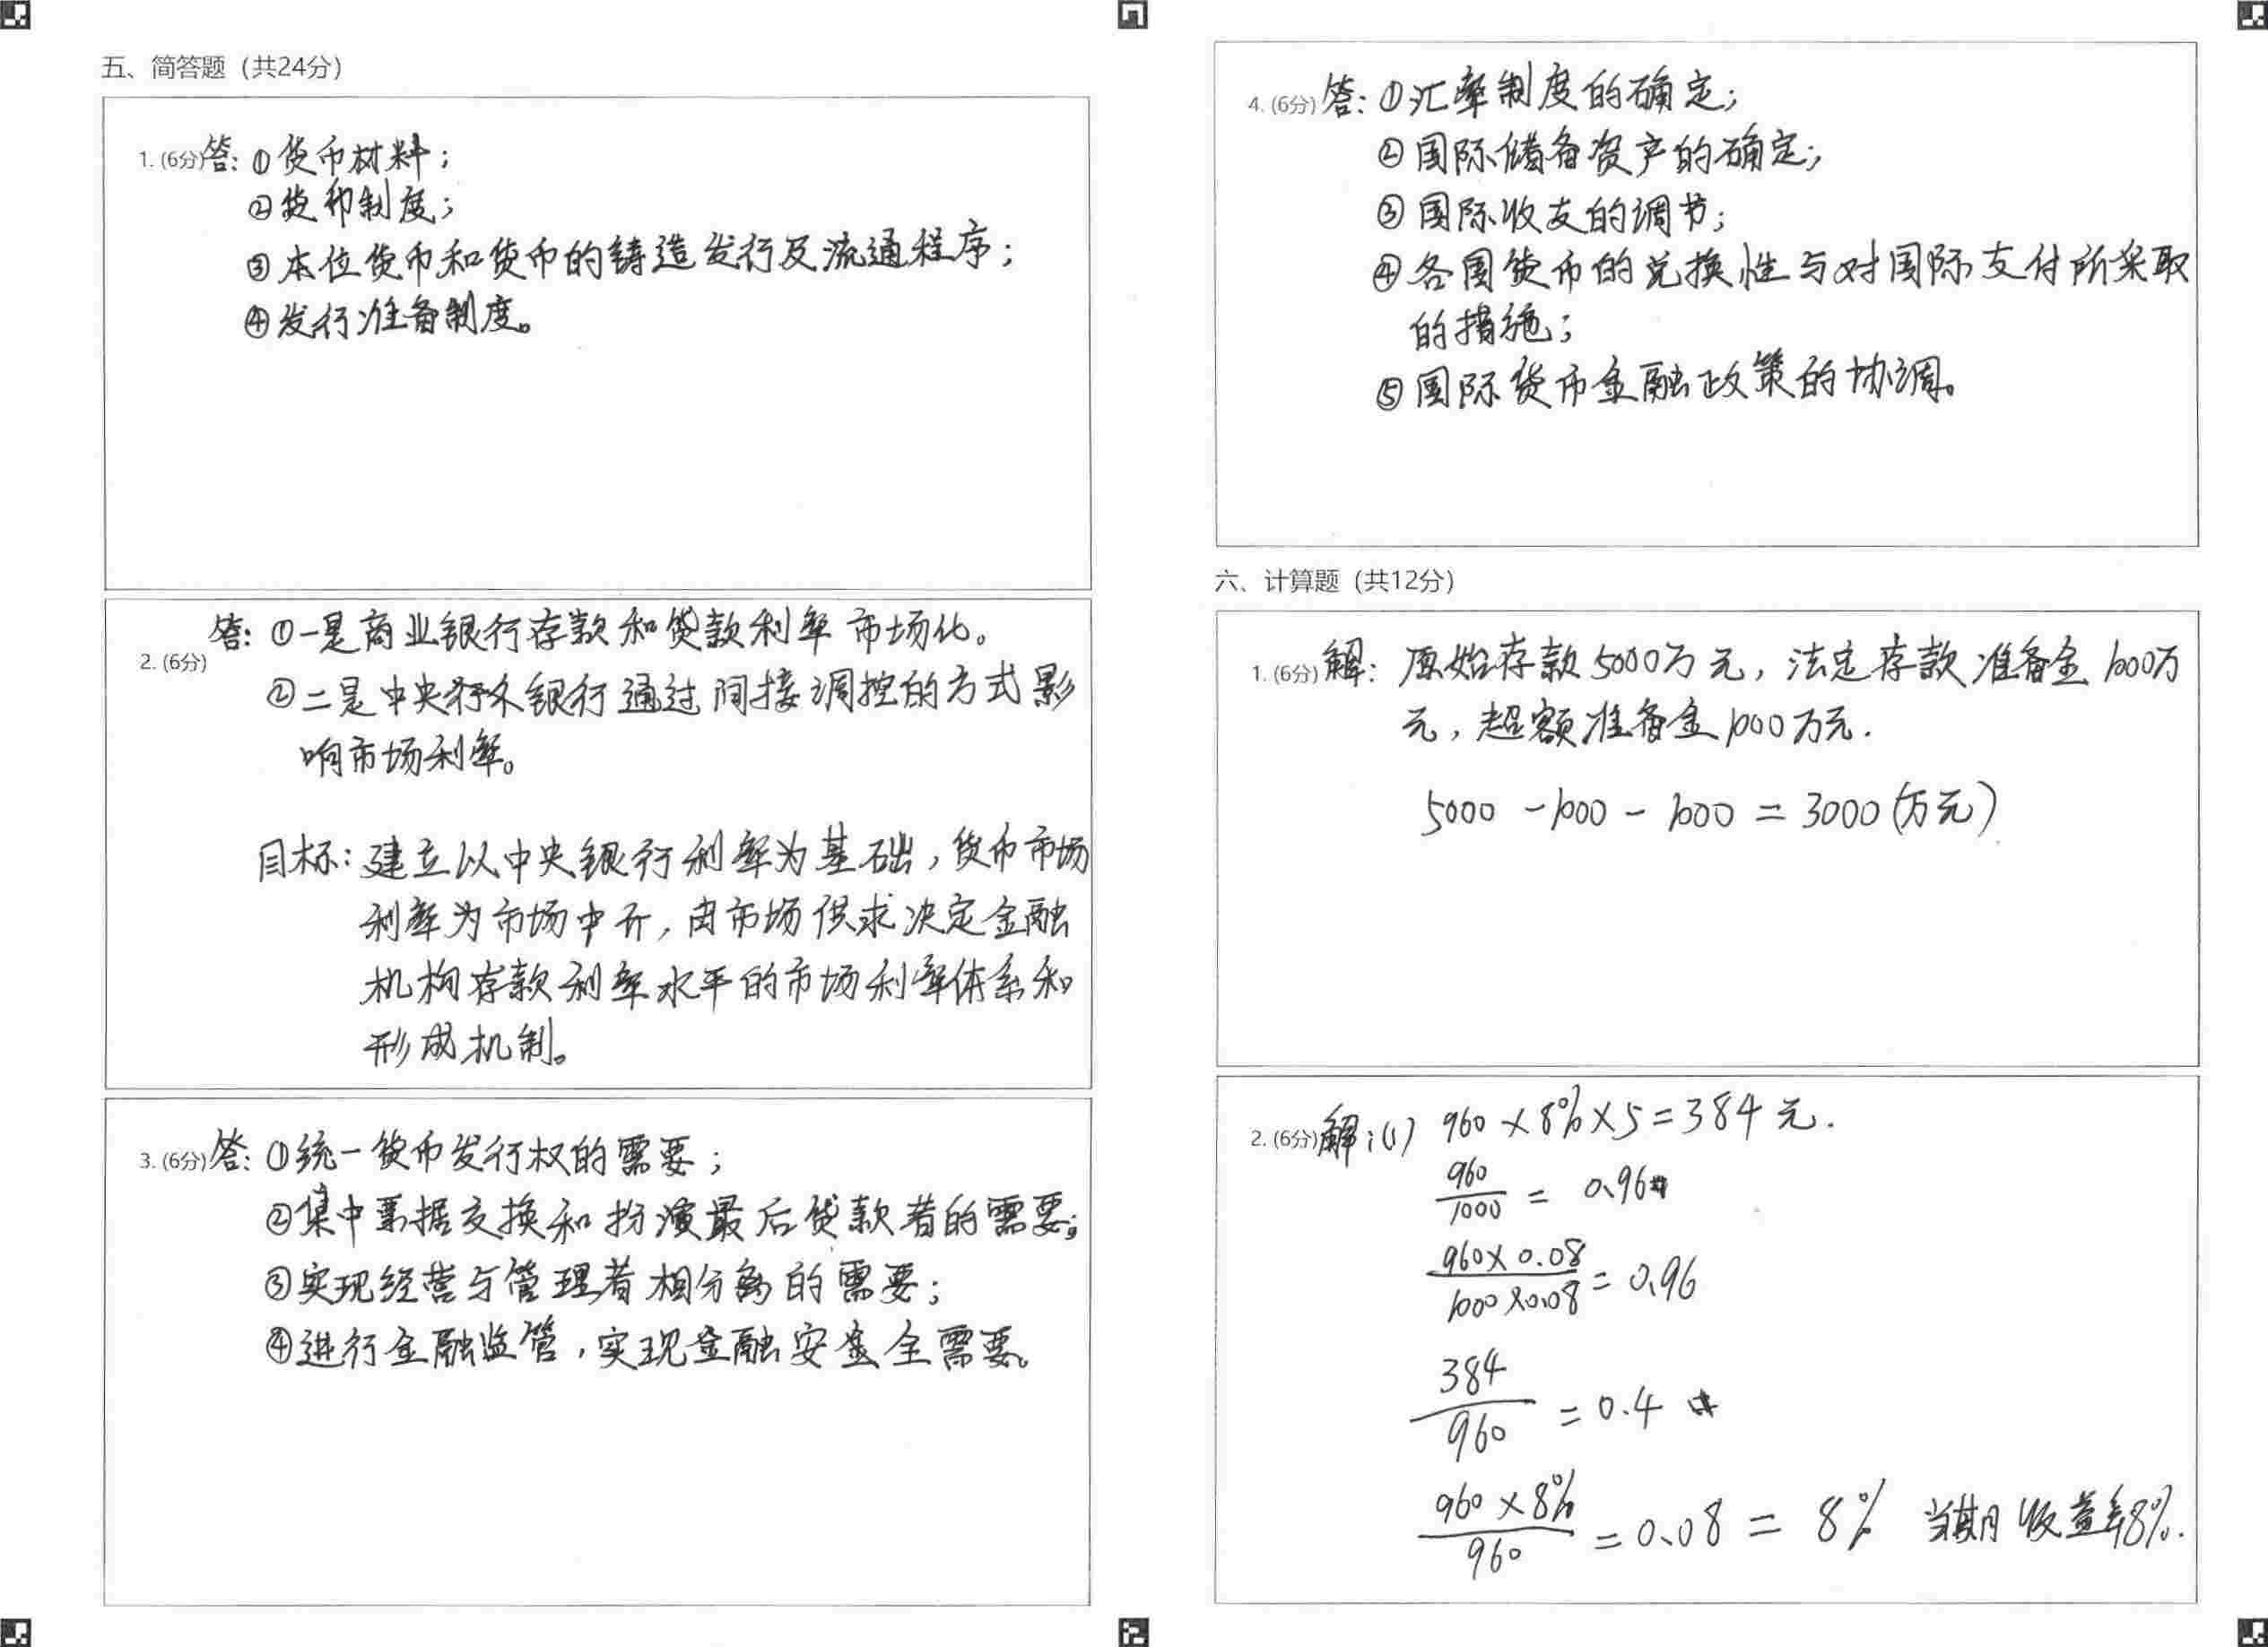 五、简答题（共24分）
1. (6分) 答：①货币材料；
②货币制度；
③本位货币和货币的铸造发行及流通程序；
④发行准备制度。
答：①一是商业银行存款和贷款利率市场化。
2. (6分)
②二是中央银行通过间接调控的方式影
响市场利率。
目标：建立以中央银行利率为基础，货币市场
利率为市场中介，由市场供求决定金融
机构存款利率水平的市场利率体系和
形成机制。
3. (6分) 答：①统一货币发行权的需要；
②集中票据交换和扮演最后贷款者的需要；
③实现经营与管理者相分离的需要；
④进行金融监管，实现金融安全需要。
4. (6分) 答：①汇率制度的确定；
②国际储备资产的确定；
③国际收支的调节；
④各国货币的兑换性与对国际支付所采取
的措施；
⑤国际货币金融政策的协调。
六、计算题（共12分）
1. (6分) 解：原始存款5000万元，法定存款准备金1000万
元，超额准备金1000万元.
5000 - 1000 - 1000 = 3000 (万元)
2. (6分) 解：(1) 960 × 8% × 5 = 384 元.
960/1000 = 0.96
960×0.08/1000×0.08 = 0.96
384/960 = 0.4
960×8%/960 = 0.08 = 8% 当期收益率8%.